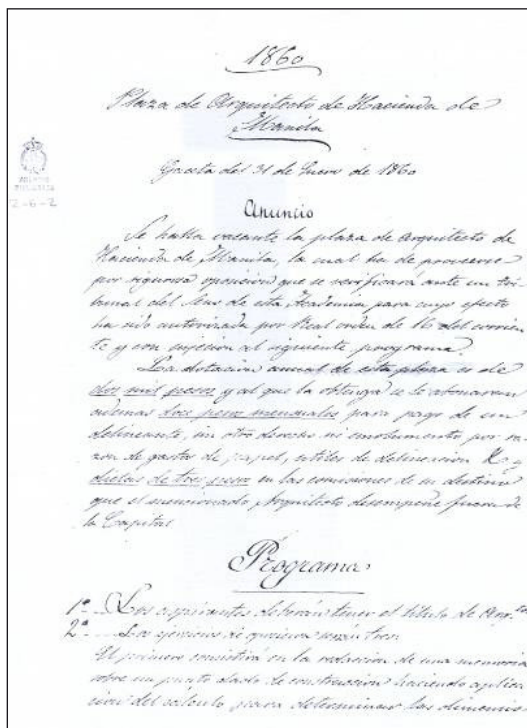 1860
Plaza de Arquitecto de Hacienda de
Manila
Gaceta del 31 de Enero de 1860
2-6-2
Anuncio
Se halla vacante la plaza de Arquitecto de
Hacienda de Manila, la cual ha de proveerse
por rigurosa oposicion que se verificará ante un tri-
bunal del seno de esta Academia para cuyo efecto
ha sido autorizada por Real orden de 16 del corrien-
te y con sujecion al siguiente programa.
La dotacion anual de esta plaza es de
dos mil pesos y al que la obtenga se le abonaran
ademas doce pesos mensuales para pago de un
delineante, sin otro derecho ni emolumento por ra-
zon de gasto de papel, utiles de delineacion &ª y
dietas de tres pesos en las comisiones de su destino
que el mencionado Arquitecto desempeñe fuera de
la Capital
Programa
1º Los aspirantes deberán tener el titulo de Arqto
2º Los ejercicios de oposicion serán tres.
El primero consistirá en la redaccion de una memoria
sobre un punto dado de construccion haciendo aplica-
cion del calculo para determinar las dimensio-